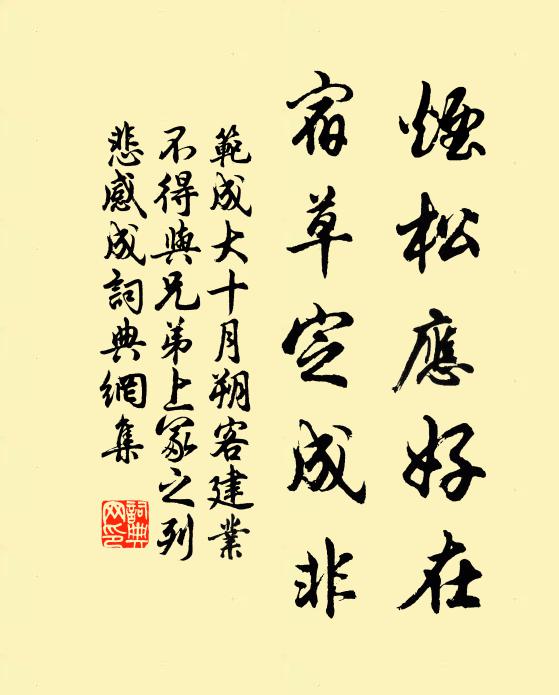 煙松應好在
宿草定成非
範成大十月朔客建業
不得與兄弟上冢之列
悲感成詞典網集
詞典網印